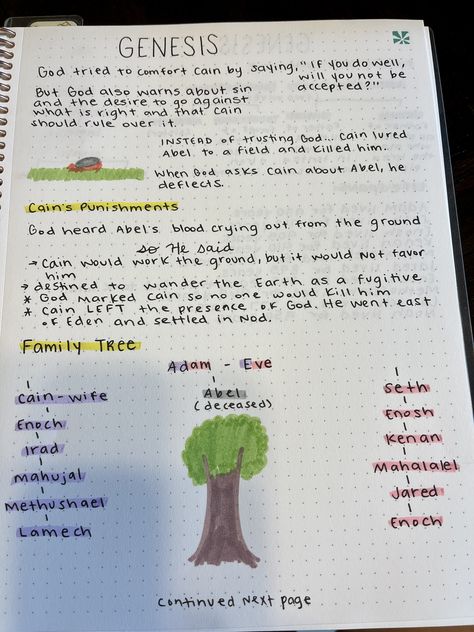 GENESIS
God tried to comfort Cain by saying, "If you do well,
will you not be
accepted?"
But God also warns about sin
and the desire to go against
what is right and that Cain
should rule over it.
INSTEAD OF trusting God... Cain lured
Abel to a field and killed him.
When God asks Cain about Abel, he
deflects.
Cain's Punishments
God heard Abel's blood crying out from the ground
so He said
→ Cain would work the ground, but it would not favor
him
→ destined to wander the Earth as a fugitive
* God marked Cain so no one would kill him
* Cain LEFT the presence of God. He went east
of Eden and settled in Nod.
Family Tree
Adam - Eve
Abel
(deceased)
Cain - wife
Enoch
Irad
Mahujal
Methushael
Lamech
Seth
Enosh
Kenan
Mahalalel
Jared
Enoch
continued next page